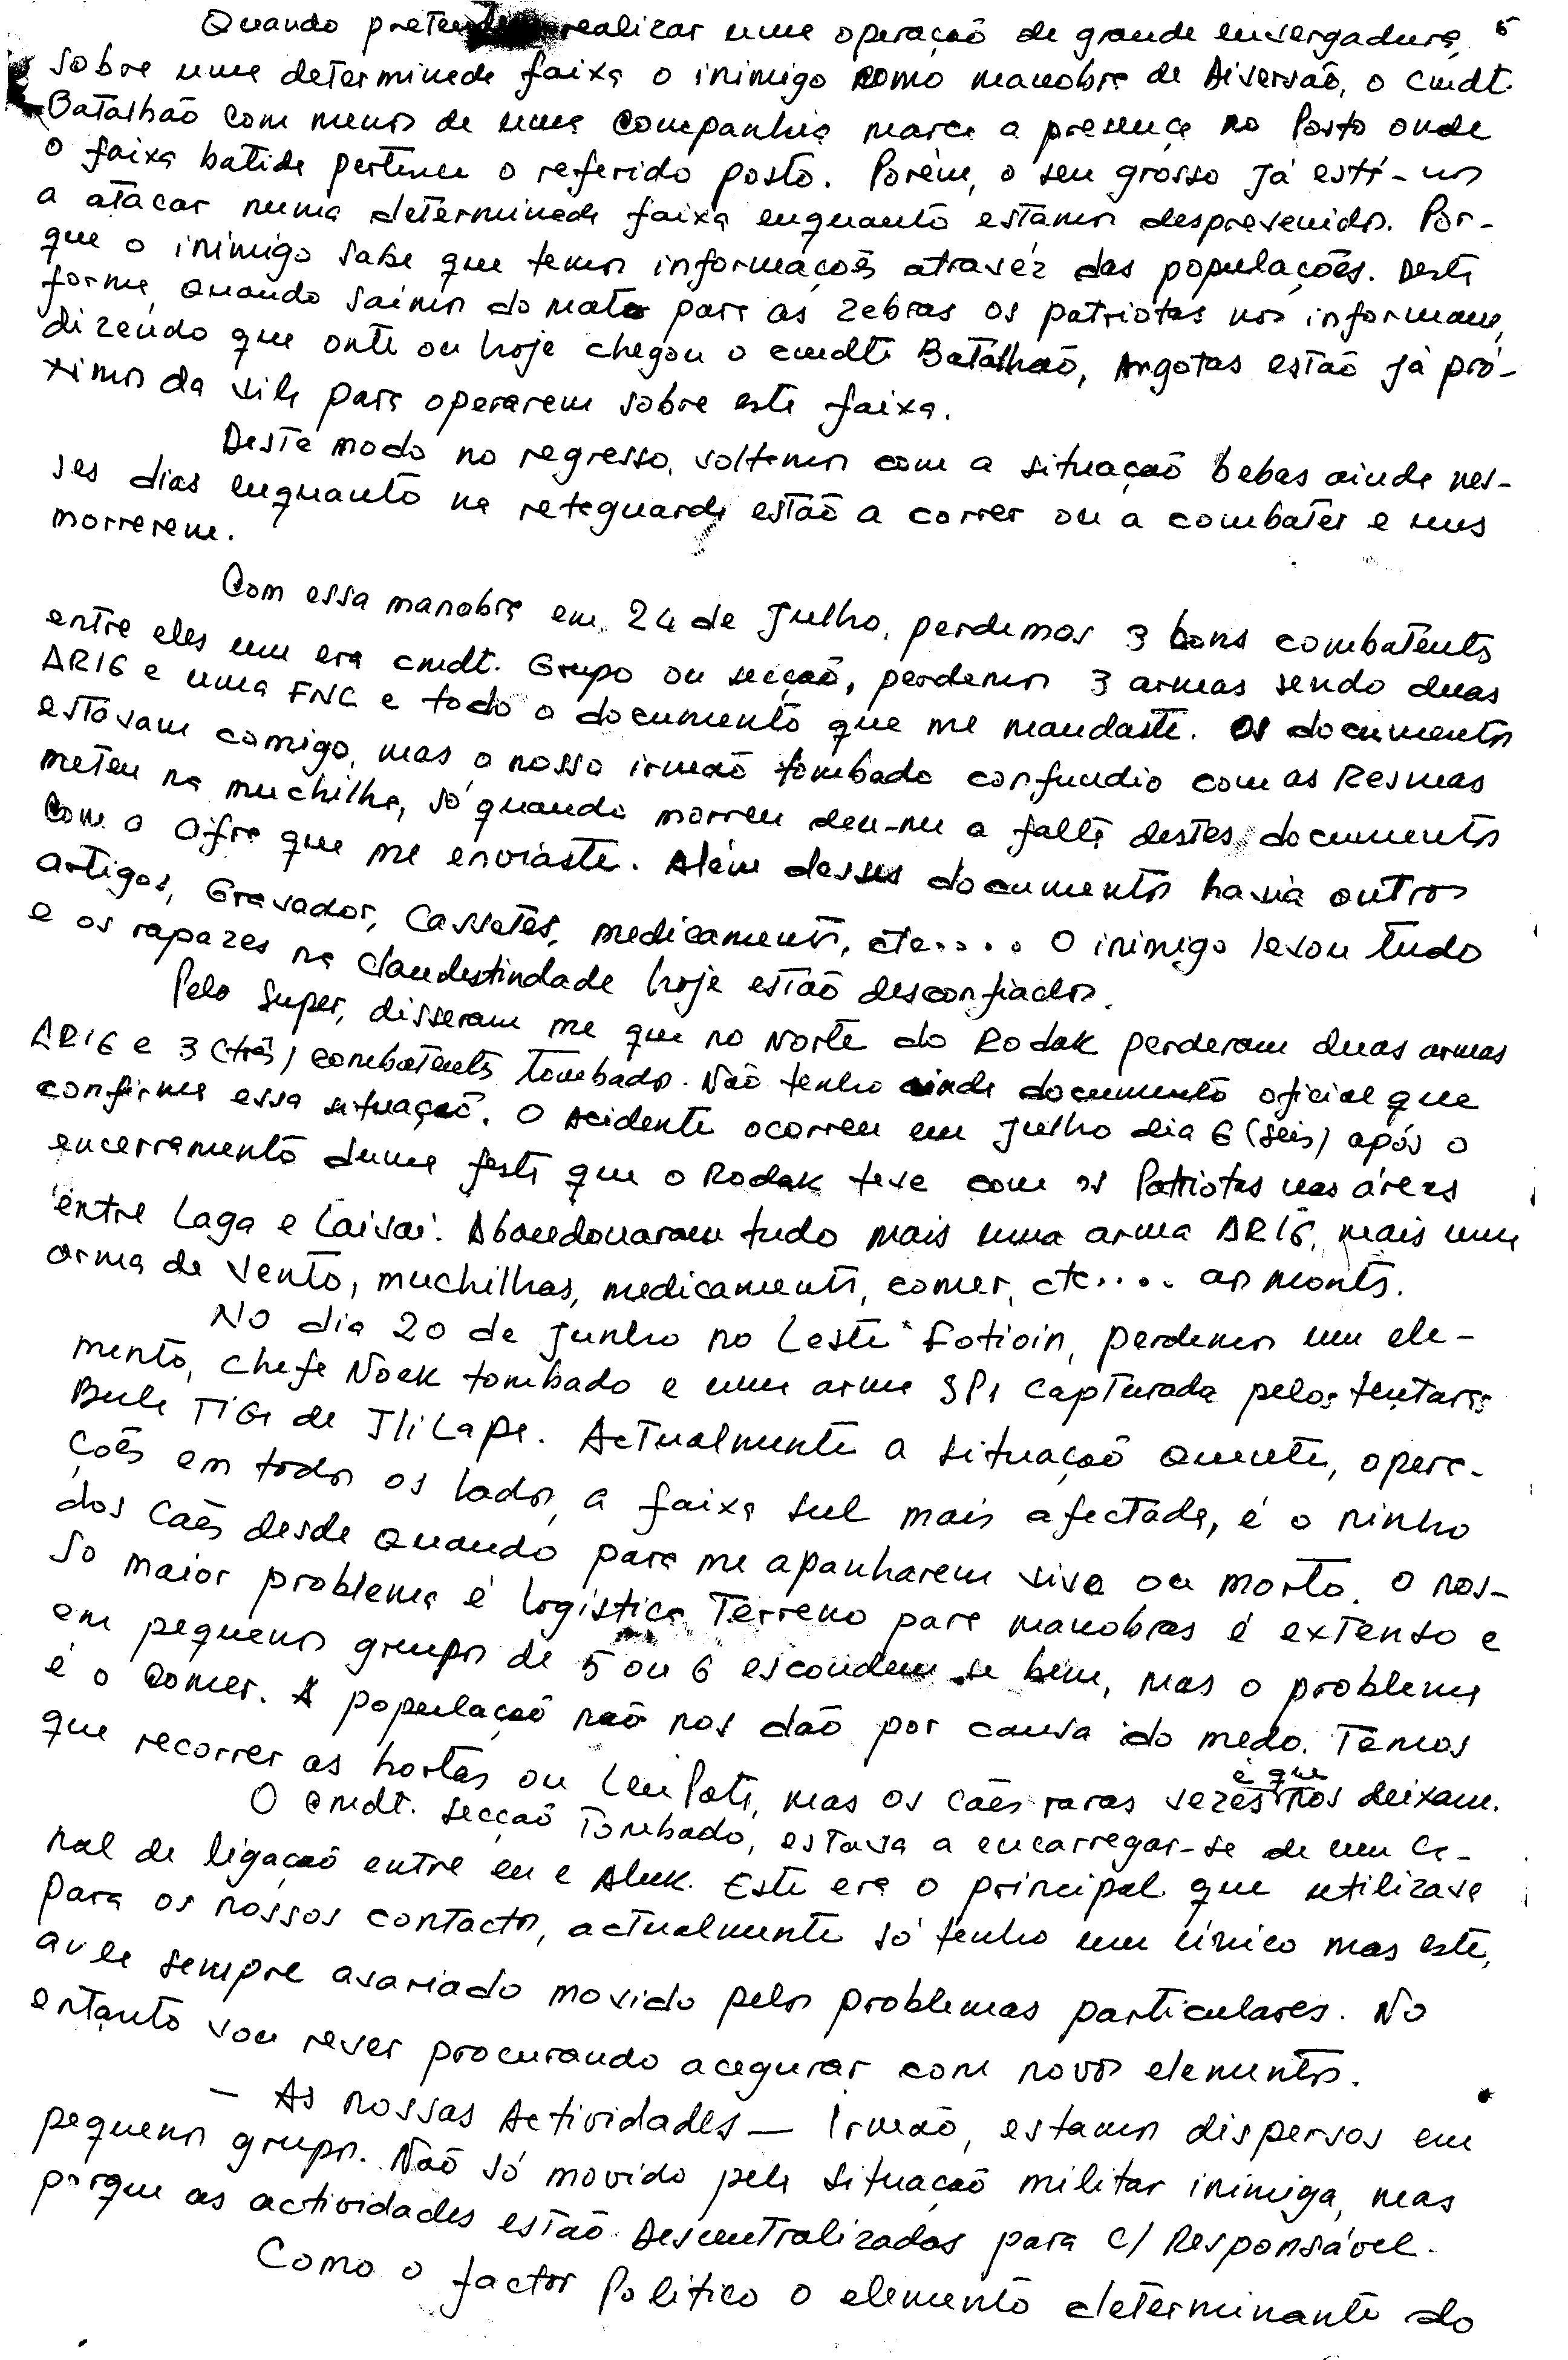 Quando preten realizar uma operação de grande envergadura 5
sobre uma determinada faixa o inimigo como manobra de Diversão, o cmdt.
Batalhão com menos de uma companhia marca a presença no Posto onde
o faixa batida pertence o referido posto. Porém, o seu grosso já está-nos
a atacar numa determinada faixa enquanto estamos desprevenidos. Por-
que o inimigo sabe que temos informações atravéz das populações. Desta
forma, quando saímos do mato para as zebras os patriotas nos informam,
dizendo que onte ou hoje chegou o cmdte Batalhão, Angotas estão já pró-
ximos da vila para operarem sobre esta faixa.
Deste modo no regresso, voltamos com a situação bebas ainda nes-
ses dias enquanto na reteguarda estão a correr ou a combater e uns
morrerem.
Com essa manobra em 24 de Julho, perdemos 3 bons combatentes
entre eles um era cmdt. Grupo ou secção, perdemos 3 armas sendo duas
AR16 e uma FNC e todo o documento que me mandaste. Os documentos
estavam comigo, mas o nosso irmão tombado confundio com as Resmas
meteu na muchilha, só quando morreu deu-me a falta destes documentos
com o Cifra que me enviaste. Além desses documentos havia outros
artigos, Gravador, Cassetes, medicamentos, etc..... O inimigo levou tudo
e os rapazes na clandestindade hoje estão desconfiados.
Pelo Super, disseram me que no Norte do Rodak perderam duas armas
AR16 e 3 (três) combatentes tombados. Não tenho ainda documento oficial que
confirma essa situação. O Acidente ocorreu em Julho dia 6 (seis) após o
encerramento duma festa que o Rodak teve com os Patriotas nas áreas
entre Laga e Laivai. Abandonaram tudo mais uma arma AR16, mais uma
arma de vento, muchilhas, medicamentos, comer, etc..... aos montes.
No dia 20 de Junho no Leste Fotioin, perdemos um ele-
mento, chefe Noek tombado e uma arma SP1 capturada pelos tentaras
Bula TIGA de IliLapa. Actualmente a situação quente, opera-
ções em todos os lados, a faixa sul mais afectada, é o ninho
dos cães desde quando para me apanharem vivo ou morto. O nos-
so maior problema é logística. Terreno para manobras é extenso e
em pequenos grupos de 5 ou 6 escondem-se bem, mas o problema
é o comer. A população não nos dão por causa do medo. Temos
que recorrer as hortas ou, mas os cães raras vezes é que nos deixam.
O cmdt. secção Tombado, estava a encarregar-se de um ca-
nal de ligação entre eu e Aluk. Este era o principal que utilizava
para os nossos contactos, actualmente só tenho um único mas este,
anda sempre avariado movido pelos problemas particulares. No
entanto vou rever procurando acegurar com novos elementos.
– As nossas Actividades – Irmão, estamos dispersos em
pequenos grupos. Não só movido pela situação militar inimiga, mas
porque as actividades estão Descentralizadas para c/ Responsável.
Como o factor Político o elemento determinante do